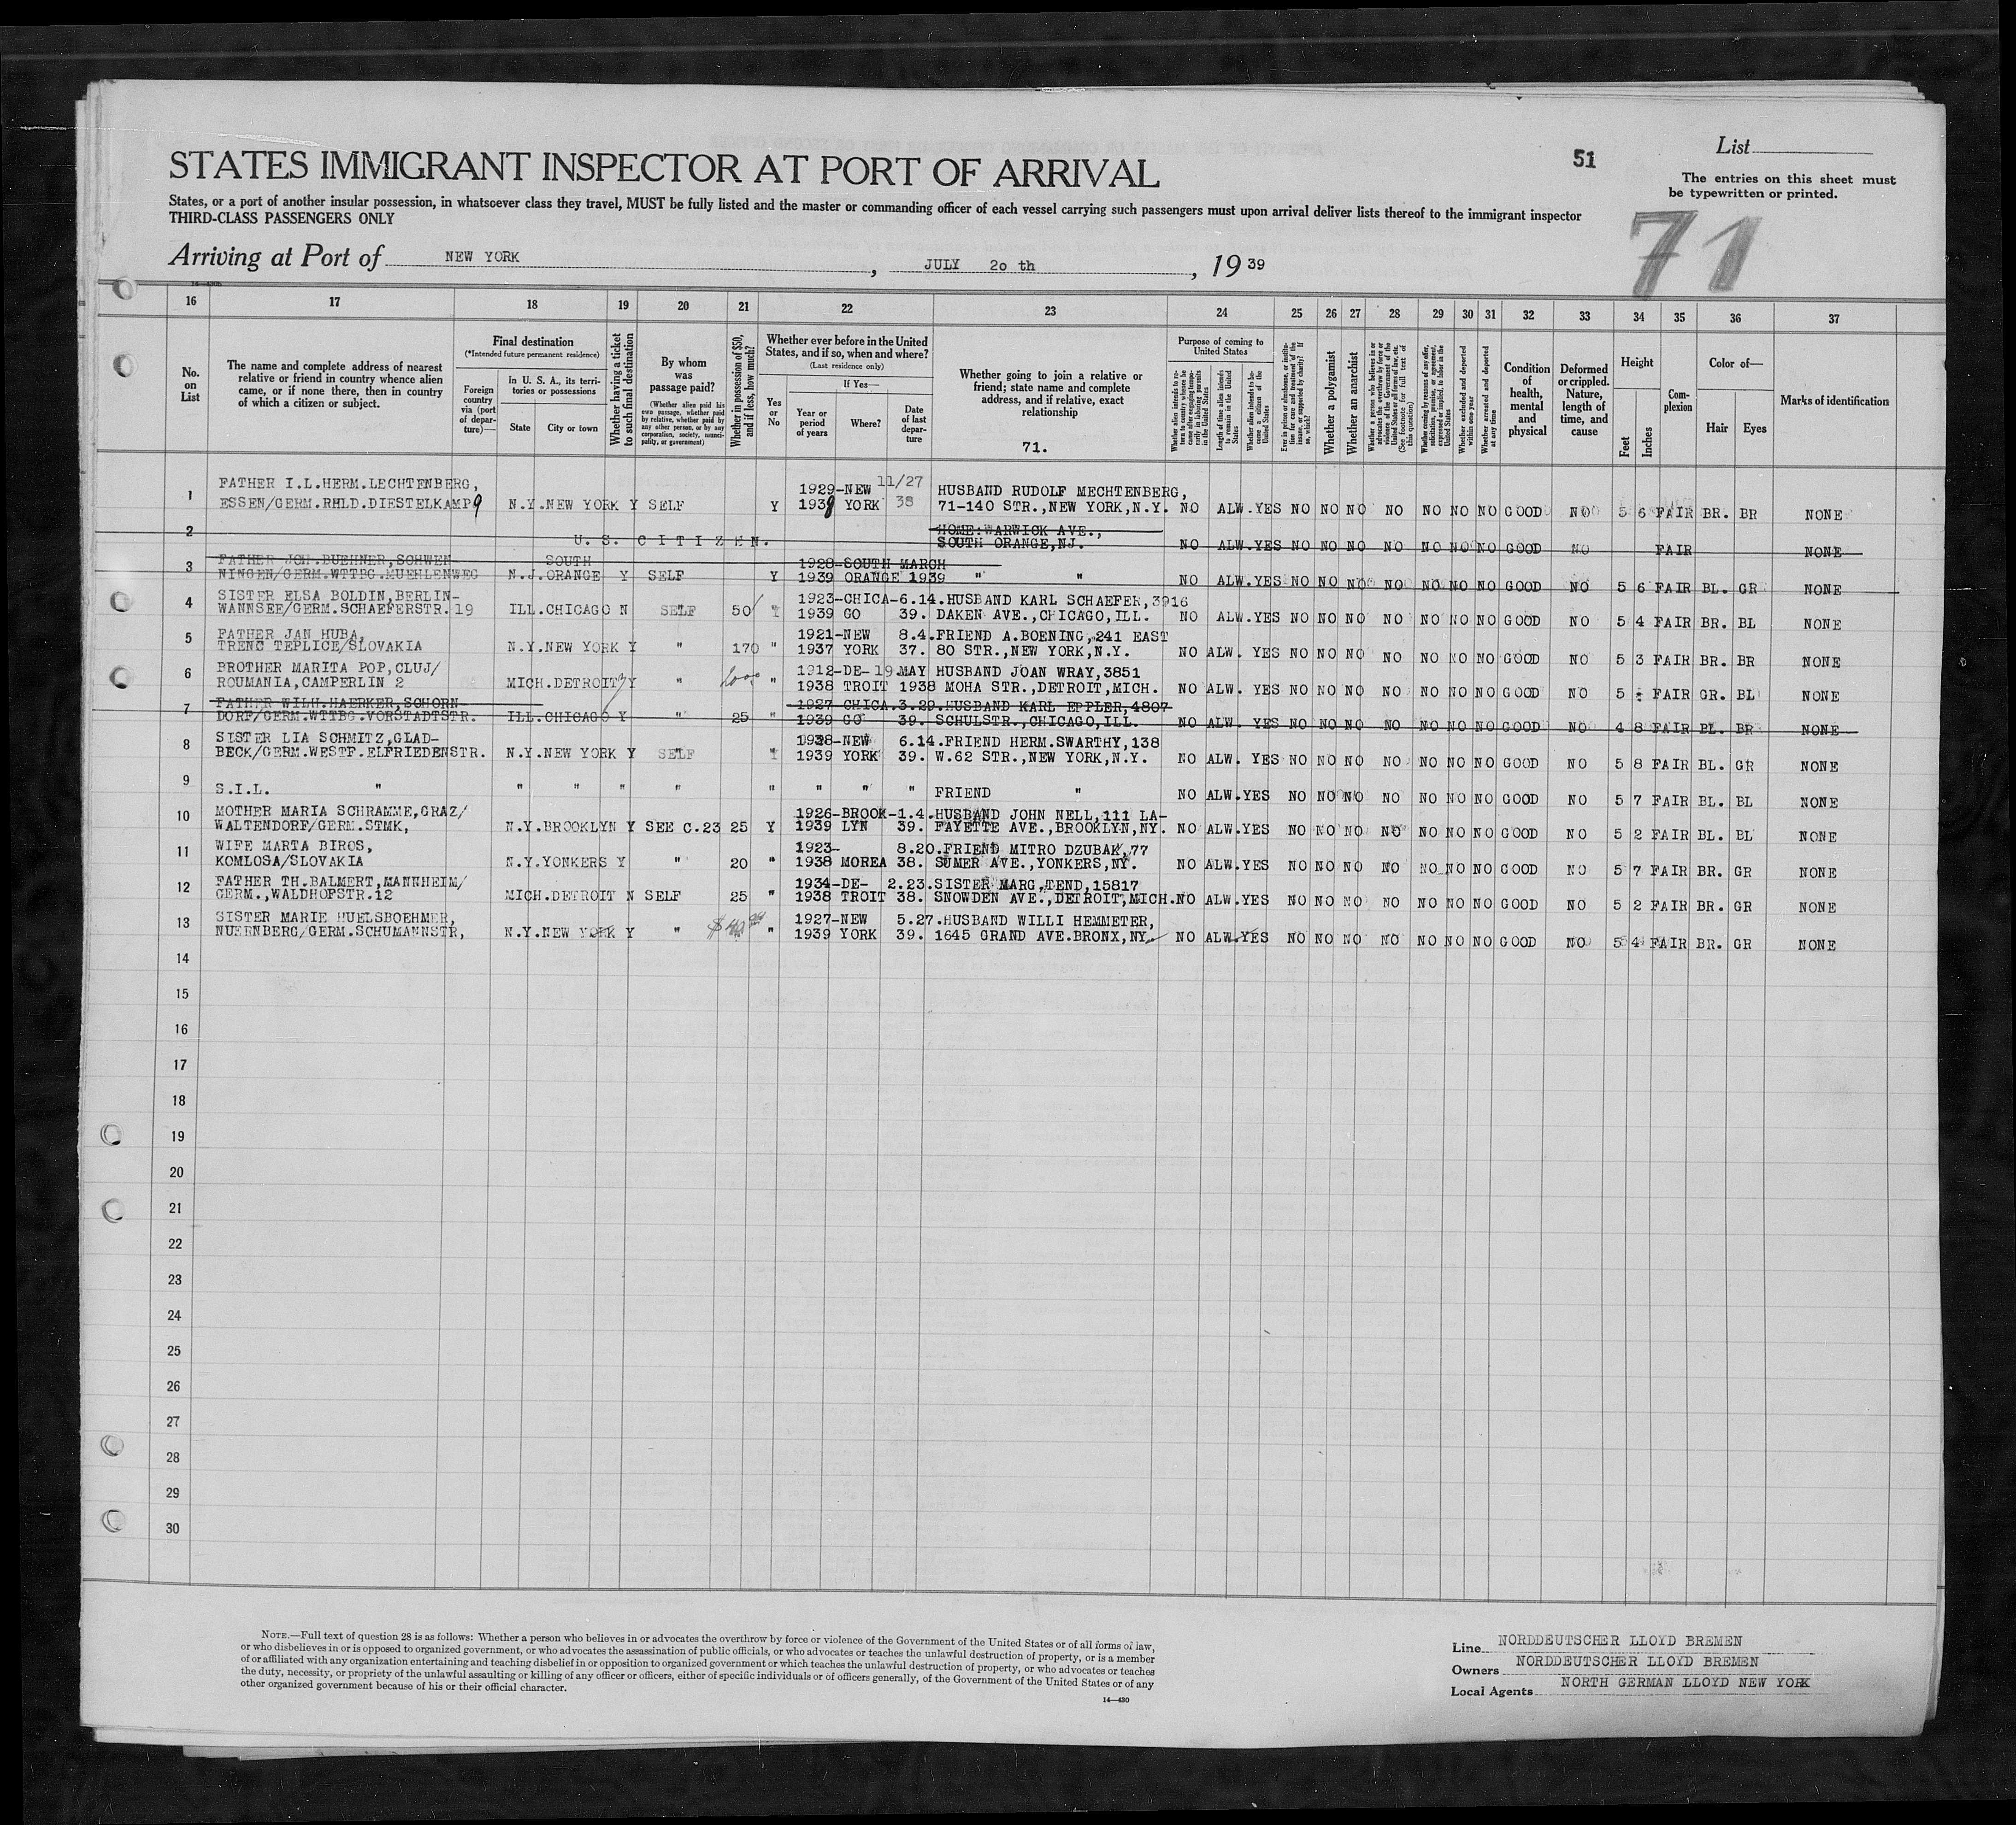 STATES IMMIGRANT INSPECTOR AT PORT OF ARRIVAL
51
List
The entries on this sheet must
be typewritten or printed.
States, or a port of another insular possession, in whatsoever class they travel, MUST be fully listed and the master or commanding officer of each vessel carrying such passengers must upon arrival deliver lists thereof to the immigrant inspector
THIRD-CLASS PASSENGERS ONLY
71
Arriving at Port of NEW YORK , JULY 2o th , 19 39
16 17 18 19 20 21 22 23 24 25 26 27 28 29 30 31 32 33 34 35 36 37
No. on List
The name and complete address of nearest
relative or friend in country whence alien
came, or if none there, then in country
of which a citizen or subject.
Final destination
(*Intended future permanent residence)
Foreign country via (port of departure)—
In U. S. A., its territories or possessions
State
City or town
Whether having a ticket to such final destination
By whom was passage paid?
(Whether alien paid his own passage, whether paid by relative, whether paid by any other person, or by any corporation, society, municipality, or government)
Whether in possession of $50, and if less, how much?
Whether ever before in the United
States, and if so, when and where?
(Last residence only)
Yes or No
If Yes—
Year or period of years
Where?
Date of last departure
Whether going to join a relative or
friend; state name and complete
address, and if relative, exact
relationship
71.
Purpose of coming to United States
Length of time alien intends to remain in the United States
Whether alien intends to become a citizen of the United States
Whether a polygamist
Whether an anarchist
Whether excluded and deported within one year
Whether arrested and deported at any time
Condition of health, mental and physical
Deformed or crippled. Nature, length of time, and cause
Height
Feet
Inches
Complexion
Color of—
Hair
Eyes
Marks of identification
1 FATHER I.L.HERM.LECHTENBERG, 1929-NEW 11/27 HUSBAND RUDOLF MECHTENBERG,
ESSEN/GERM.RHLD.DIESTELKAMP9 N.Y.NEW YORK Y SELF Y 1938 YORK 38 71-140 STR.,NEW YORK,N.Y. NO ALW.YES NO NO NO NO NO NO NO GOOD NO 5 6 FAIR BR. BR NONE
2 HOME:WARWICK AVE.,
U. S. C I T I Z E N. SOUTH ORANGE,NJ. NO ALW.YES NO NO NO NO NO NO NO GOOD NO FAIR NONE
3 FATHER JOH.BUEHNER,SCHWEN- SOUTH 1928-SOUTH MARCH
NINGEN/GERM.WTTBG.MUEHLENWEG N.J.ORANGE Y SELF Y 1939 ORANGE 1939 " " NO ALW.YES NO NO NO NO NO NO NO GOOD NO 5 6 FAIR BL. GR NONE
4 SISTER ELSA BOLDIN,BERLIN- 1923-CHICA-6.14.HUSBAND KARL SCHAEFER,3916
WANNSEE/GERM.SCHAEFERSTR.19 ILL.CHICAGO N SELF 50 Y 1939 GO 39. DAKEN AVE.,CHICAGO,ILL. NO ALW.YES NO NO NO NO NO NO NO GOOD NO 5 4 FAIR BR. BL NONE
5 FATHER JAN HUBA, 1921-NEW 8.4.FRIEND A.BOENING,241 EAST
TRENC TEPLICE/SLOVAKIA N.Y.NEW YORK Y " 170 " 1937 YORK 37. 80 STR.,NEW YORK,N.Y. NO ALW. YES NO NO NO NO NO NO NO GOOD NO 5 3 FAIR BR. BR NONE
6 BROTHER MARITA POP,CLUJ/ 1912-DE- 19.MAY HUSBAND JOAN WRAY,3851
ROUMANIA,CAMPERLIN 2 MICH.DETROIT Y " " 1938 TROIT 1938 MOHA STR.,DETROIT,MICH. NO ALW. YES NO NO NO NO NO NO NO GOOD NO 5 FAIR GR. BL NONE
7 FATHER WILH.HAERKER,SCHORN- 1927-CHICA.3.29.HUSBAND KARL EPPLER,4807
DORF/GERM.WTTBG.VORSTADTSTR. ILL.CHICAGO Y " 25 " 1939 GO 39. SCHULSTR.,CHICAGO,ILL. NO ALW. YES NO NO NO NO NO NO NO GOOD NO 4 8 FAIR BL. BR NONE
8 SISTER LIA SCHMITZ,GLAD- 1928-NEW 6.14.FRIEND HERM.SWARTHY,138
BECK/GERM.WESTF.ELFRIEDENSTR. N.Y.NEW YORK Y SELF Y 1939 YORK 39. W.62 STR.,NEW YORK,N.Y. NO ALW. YES NO NO NO NO NO NO NO GOOD NO 5 8 FAIR BL. GR NONE
9 S.I.L. " " " " " " " " " FRIEND " NO ALW.YES NO NO NO NO NO NO NO GOOD NO 5 7 FAIR BL. BL NONE
10 MOTHER MARIA SCHRAMME,GRAZ/ 1926-BROOK-1.4.HUSBAND JOHN NELL,111 LA-
WALTENDORF/GERM.STMK, N.Y.BROOKLYN Y SEE C.23 25 Y 1939 LYN 39. FAYETTE AVE.,BROOKLYN,NY. NO ALW.YES NO NO NO NO NO NO NO GOOD NO 5 2 FAIR BL. BL NONE
11 WIFE MARTA BIROS, 1923- 8.20.FRIEND MITRO DZUBAK,77
KOMLOSA/SLOVAKIA N.Y.YONKERS Y " 20 " 1938 MOREA 38. SUMER AVE.,YONKERS,NY. NO ALW.YES NO NO NO NO NO NO NO GOOD NO 5 7 FAIR BR. GR NONE
12 FATHER TH.BALMERT,MANNHEIM/ 1934-DE- 2.23.SISTER MARG.TEND,15817
GERM.,WALDHOFSTR.12 MICH.DETROIT N SELF 25 " 1938 TROIT 38. SNOWDEN AVE.,DETROIT,MICH.NO ALW.YES NO NO NO NO NO NO NO GOOD NO 5 2 FAIR BR. GR NONE
13 SISTER MARIE HUELSBOEHMER, 1927-NEW 5.27.HUSBAND WILLI HEMMETER,
NUERNBERG/GERM.SCHUMANNSTR, N.Y.NEW YORK Y " " 1939 YORK 39. 1645 GRAND AVE.BRONX,NY. NO ALW.YES NO NO NO NO NO NO NO GOOD NO 5 4 FAIR BR. GR NONE
14
15
16
17
18
19
20
21
22
23
24
25
26
27
28
29
30
NOTE.—Full text of question 28 is as follows: Whether a person who believes in or advocates the overthrow by force or violence of the Government of the United States or of all forms of law,
or who disbelieves in or is opposed to organized government, or who advocates the assassination of public officials, or who advocates or teaches the unlawful destruction of property, or is a member
of or affiliated with any organization entertaining and teaching disbelief in or opposition to organized government or which teaches the unlawful destruction of property, or who advocates or teaches
the duty, necessity, or propriety of the unlawful assaulting or killing of any officer or officers, either of specific individuals or of officers generally, of the Government of the United States or of any
other organized government because of his or their official character.
14—430
Line NORDDEUTSCHER LLOYD BREMEN
Owners NORDDEUTSCHER LLOYD BREMEN
Local Agents NORTH GERMAN LLOYD NEW YORK